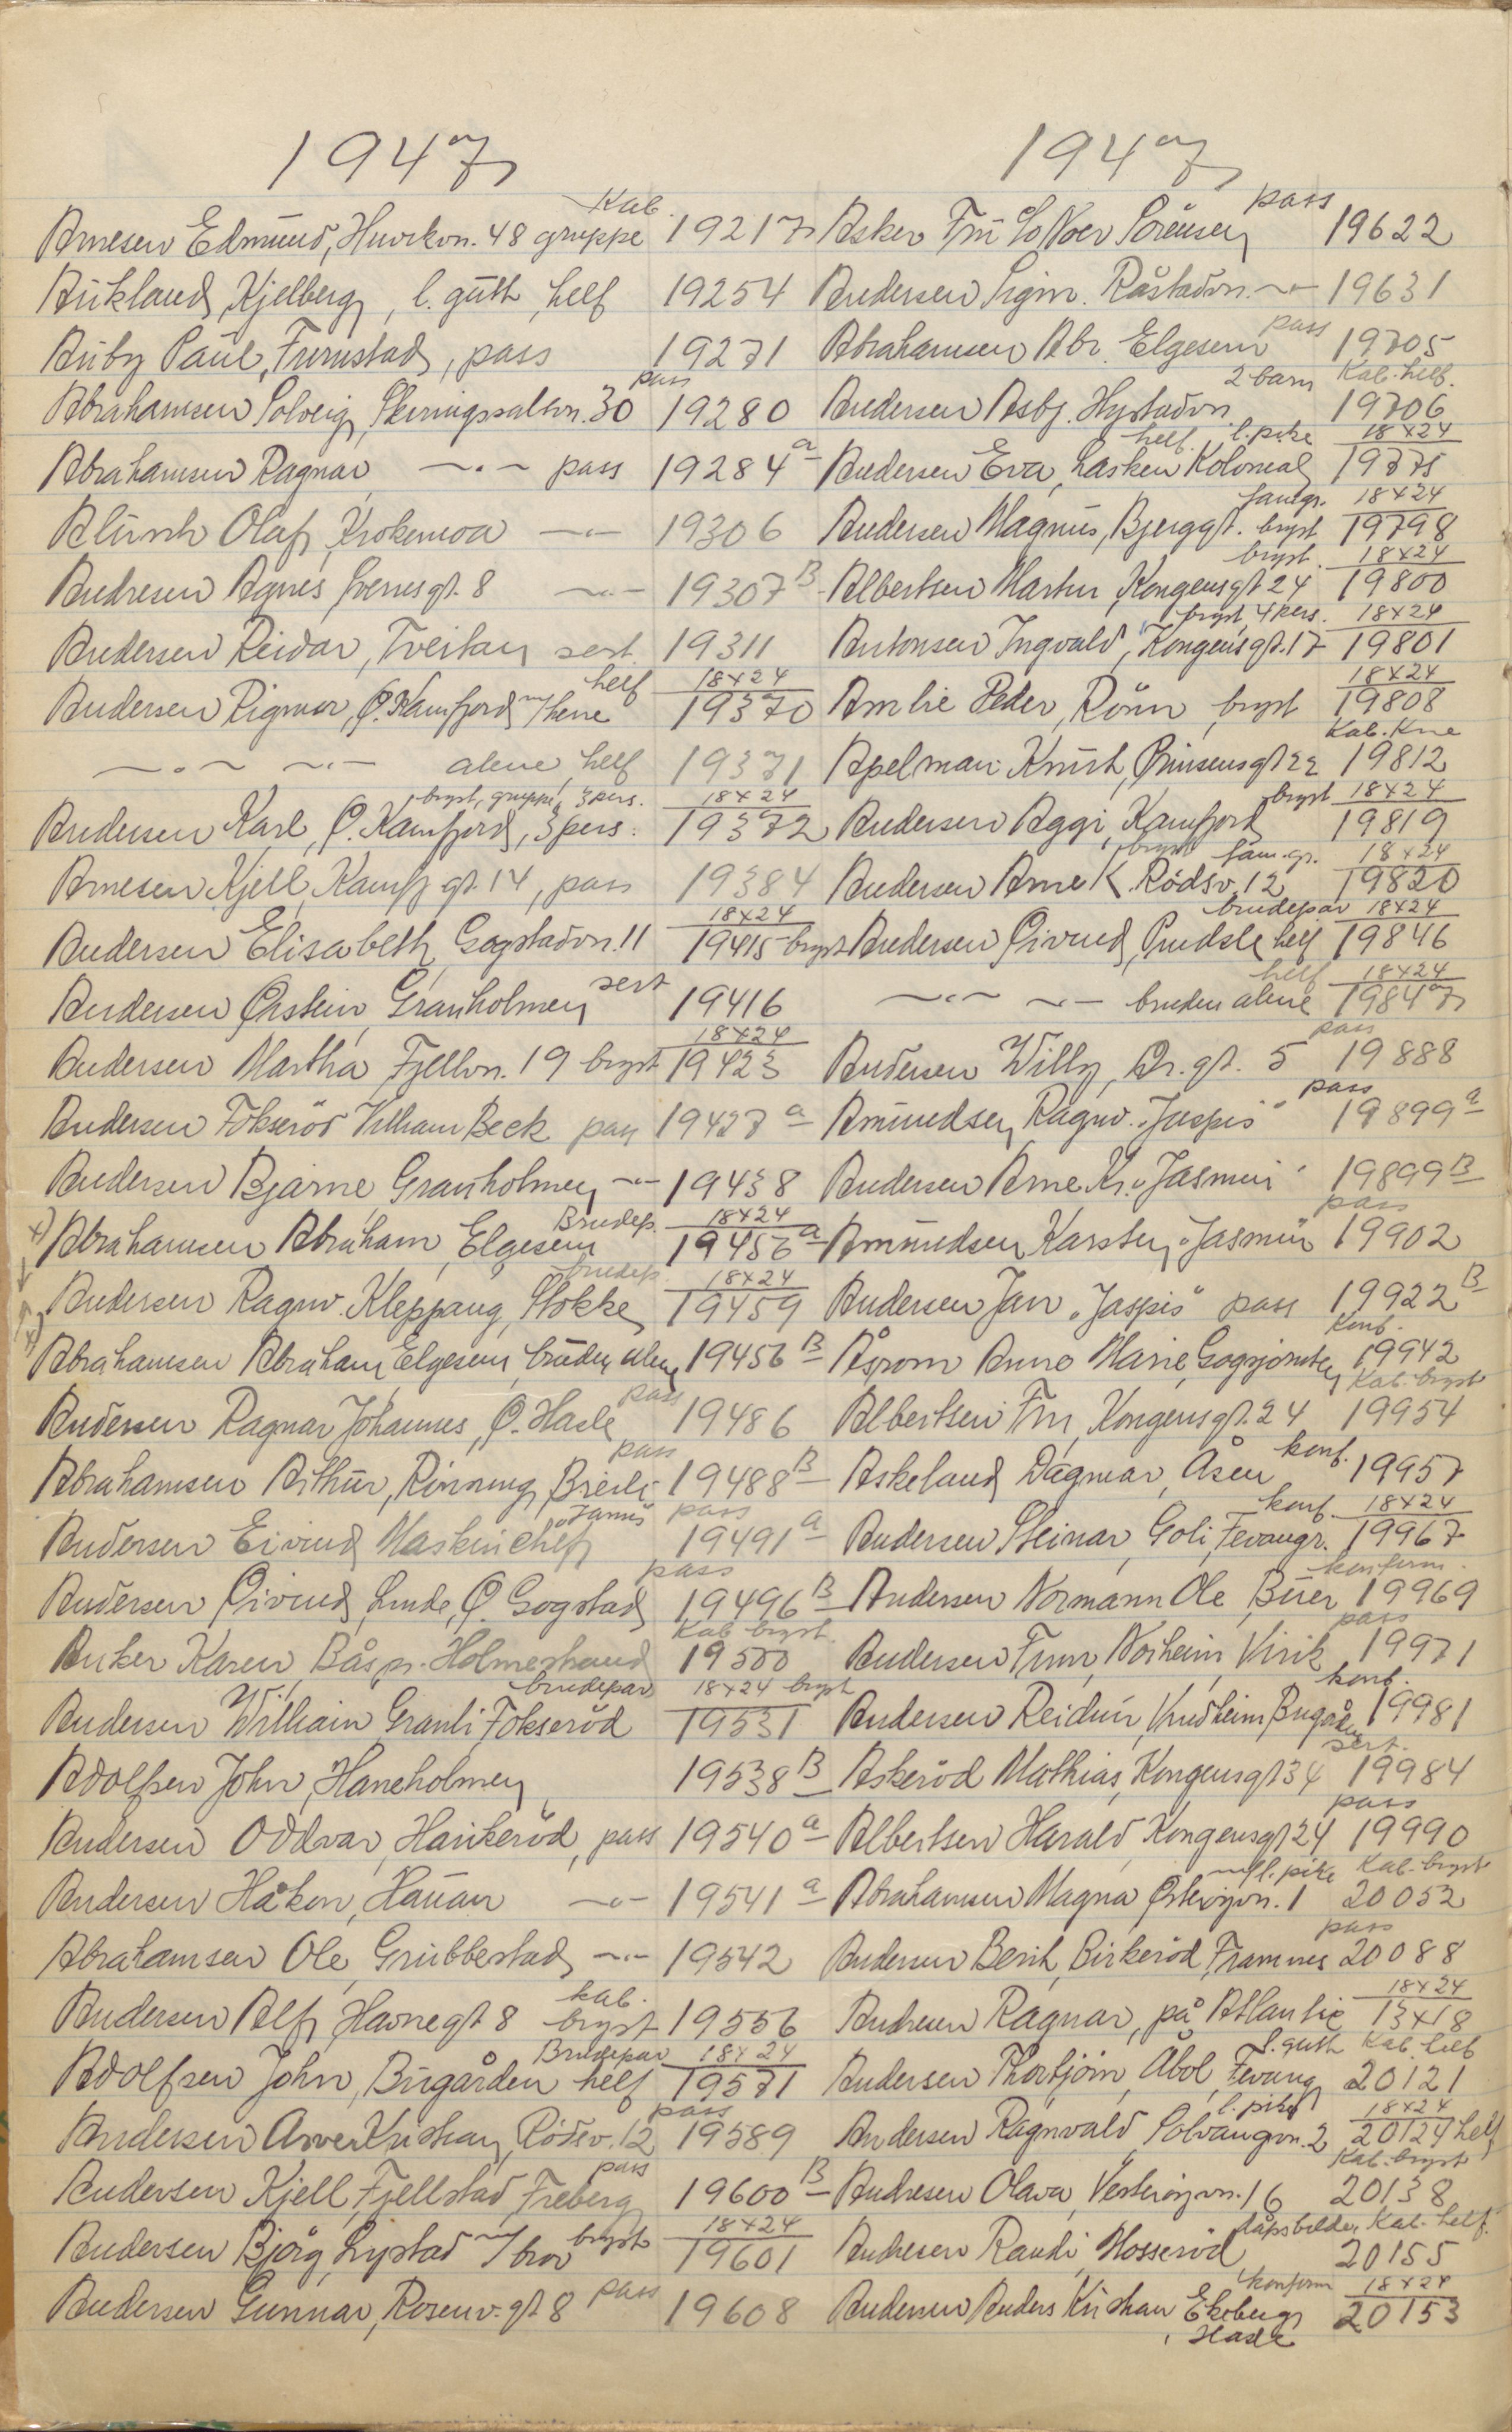 1947
Arnesen Edmund, Huvikvn. 48 gruppe Kab. 19217
Aukland Kjelberg, l. gutt, helf 19254
Auby Paul, Furustad, pass 19271
Abrahamsen Solveig, Skiringssalvn. 30 pass 19280
Abrahamsen Ragnar —〃— pass 19284 a
Olaf, Krokemoa —〃— 19306
Andresen Agnes, gt. 8 —〃— 19307 B
Andersen Reidar, Tveitan sert. 19311
Andersen Rigmor, Ø. Kamfjord m/ helf 18x24 19370
—〃— —〃— alene, helf 19371
Andersen Karl, Ø. Kamfjord, 3 pers. bryst, gruppe, 3 pers. 18x24 19372
Arnesen Kjell, Kamfj gt. 14, pass 19384
Andersen Elisabeth, Gogstadvn. 11 18x24 19415 bryst
Andersen Øistein, Granholmen sert 19416
Andersen Martha Fjellvn. 19 bryst 18x24 19423
Andersen Fokserød William Beck pass 19427 a
Andersen Bjarne, Granholmen —〃— 19438
x) Abrahamsen Abraham, Elgesem Brudep. 18x24 19456 a
Andersen Ragnv. Kleppang, Stokke brudep. 18x24 19459
Abrahamsen Abraham Elgesem, bruden alene 19456 B
Andersen Ragnar Johannes, Ø. Hasle pass 19486
Abrahamsen Arthur, Rönning, pass 19488 B
Andersen Eivind Maskinchef "Janus" pass 19491 a
Andersen Øivind, Linde, Ø. Gogstad pass 19496 B
Anker Karen, Holmestrand Kab. bryst 19500
Andersen William Granli, Fokseröd brudepar 18x24 bryst 19531
Adolfsen John, Haneholmen 19538 B
Andersen Oddvar, Haukeröd, pass 19540 a
Andersen Håkon, Hauan —〃— 19541 a
Abrahamsen Ole, Grubbestad —〃— 19542
Andersen Alf, Havnegt 8 kab. bryst 19556
Adolfsen John, Bugården helf Brudepar 18x24 19571
Andersen Arve Kristian, Rödsv. 12 pass 19589
Andersen Kjell, Fjellstad Freberg pass 19600 B
Andersen Bjørg, Lystad m/ bror bryst 18x24 19601
Andersen Gunnar, Rosenv. gt 8 pass 19608
1947
Asker Fru c/o Noer Sörensen pass 19622
Andersen Sigm. Råstadvn. —〃— 19631
Abrahamsen Abr. Elgesem pass 19705
Andersen Asbj. Hystadvn. 2 barn Kab. helf. 19706
Andersen Eva, Lasken Kolonial helf. l. pike 18x24 19775
Andersen Magnus, Bjerggt. bryst famgr. 18x24 19798
Albertsen Martin, Kongensgt 24 bryst. 18x24 19800
Antonsen Ingvald, Kongensgt. 17 bryst, 4 pers. 18x24 19801
Amlie Peder, Rönn, bryst 18x24 19808
Apelman Knut, Prinsensgt 22 Kab. Kne 19812
Andersen Aggi, Kamfjord bryst 18x24 19819
Andersen Arne K. Rödsv. 12 bryst fam. gr. 18x24 19820
Andersen Øivind, Pindsle helf brudepar 18x24 19846
—〃— —〃— bruden alene helf 18x24 19847
Andersen Willy, Dr. gt. 5 pass 19888
Amundsen Ragnv. "Jaspis" pass 19899 a
Andersen Arne Kr. "Jasmin" 19899 B
Amundsen Karsten, "Jasmin" pass 19902
Andersen Jan "Jaspis" pass 19922 B
Åsrom Anne Marie, Konf. 19942
Albertsen Fru, Kongensgt. 24 Kab. bryst 19954
Askeland Dagmar, Åsen konf. 19957
Andersen Steinar, Goli, Fevangr. konf. 18x24 19967
Andersen Normann Ole, Buer konfirm. 19969
Andersen Finn, Norheim, Virik pass 19971
Andersen Reidun, Vindheim, Bugården konf. 19981
Askeröd Mathias, Kongensgt 34 sert. 19984
Albertsen Harald, Kongensgt 24 pass 19990
Abrahamsen Magna Østeröyvn. 1 m/l. pike Kab. bryst 20052
Andersen Berit, Birkeröd, Framnes pass 20088
Andresen Ragnar, på Atlantic 18x24 13x18
Andersen Thorbjörn, Åbol, Fevang l. gutt Kab. helf 20121
Andersen Ragnvald, Solvangvn. 2 l. pike 18x24 20124 helf
Andresen Olava, Vesteröyvn. 16 Kab. bryst 20138
Andresen Randi, Mosseröd dåpsbilde, Kab. helf. 20155
Andersen Anders Kristian Ekeberg, Hasle konfirm 18x24 20153